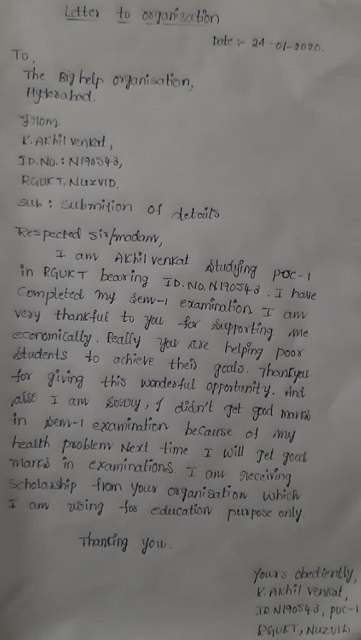 Letter to organisation
Date :- 24-01-2020.
To,
The Bighelp organisation,
Hyderabad.
From
K. Akhil venkat,
ID.NO.: N190543,
RGUKT, NUZVID.
Sub : submition of details.
Respected sir/madam,
I am Akhil venkat studying puc-1
in RGUKT bearing ID.NO.N190543. I have
completed my sem-1 examination I am
very thankful to you for supporting me
economically. Really you are helping poor
students to achieve their goals. Thankyou
for giving this wonderful opportunity. And
also I am sorry, I didn't get good marks
in sem-1 examination because of my
health problem Next time I will get good
marks in examinations I am receiving
scholarship from your organisation which
I am using for education purpose only.
Thanking you.
Yours obediently,
K. Akhil venkat,
ID.N190543, puc-1
RGUKT, NUZVID